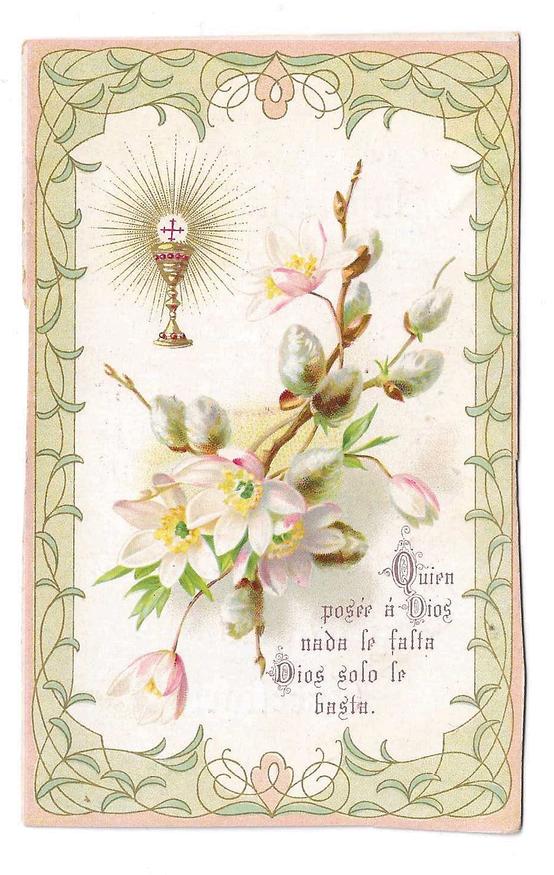 Quien
posée á Dios
nada le falta
Dios solo le
basta.